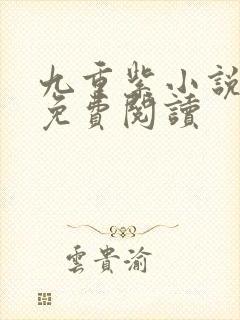 九重紫小説
免費閱讀
雲貴渝